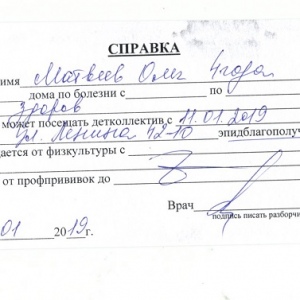 СПРАВКА
имя Матвеев Олег 4 года
дома по болезни с по
здоров
может посещать детколлектив с 11.01.2019
ул. Ленина 42-10 эпидблагополуч
дается от физкультуры с
от профпрививок до
Врач
подпись писать разборчи
01 2019г.